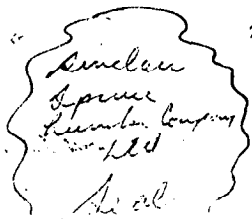 Sinclair
Spruce
Lumber Company
Ltd
Seal